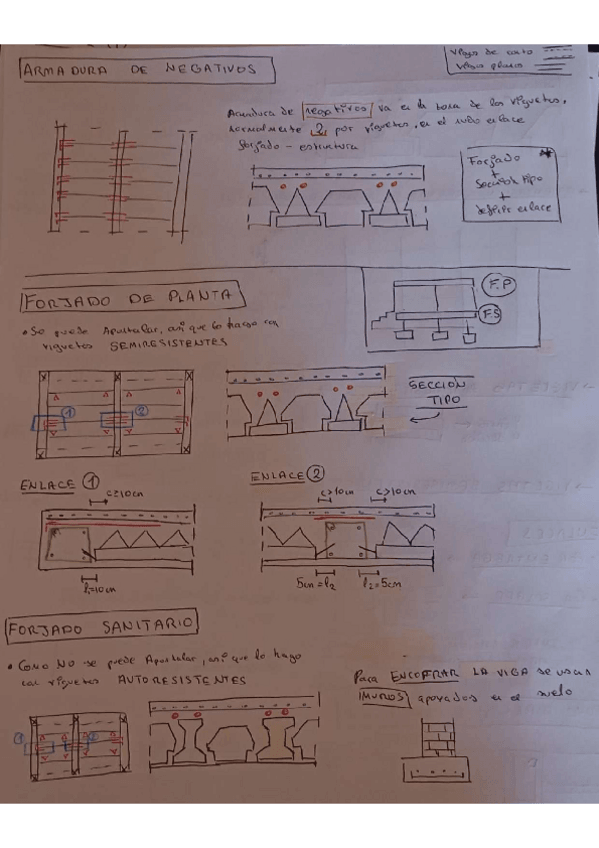 Vigas de canto
Vigas planas
ARMADURA DE NEGATIVOS
Armadura de negativos va en la zona de las viguetas,
normalmente 2 por viguetas, en el nudo enlace
forjado - estructura
Forjado
+
Sección tipo
+
definir enlace
FORJADO DE PLANTA
F.P
FS
• Se puede Apuntalar, asi que lo hago con
viguetas SEMIRESISTENTES
1
2
SECCIÓN
TIPO
ENLACE 1
c≥10cm
l1=10cm
ENLACE 2
c>10cm
c>10cm
5cm=l2
l2=5cm
FORJADO SANITARIO
• Como NO se puede Apuntalar, asi que lo hago
con viguetas AUTORESISTENTES
1
2
Para ENCOFRAR LA VIGA se usan
MUROS apoyados en el suelo